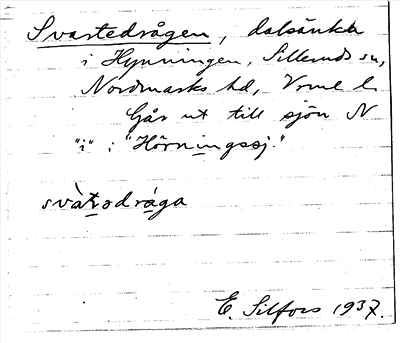 Svartedrågen, dalsänka
i Hynningen, Sillerud sn,
Nordmarks hd, Vrml l.
Går ut till sjön N
"i" i "Hörningssj."
svàṭədrága
E. Silfors 1937.